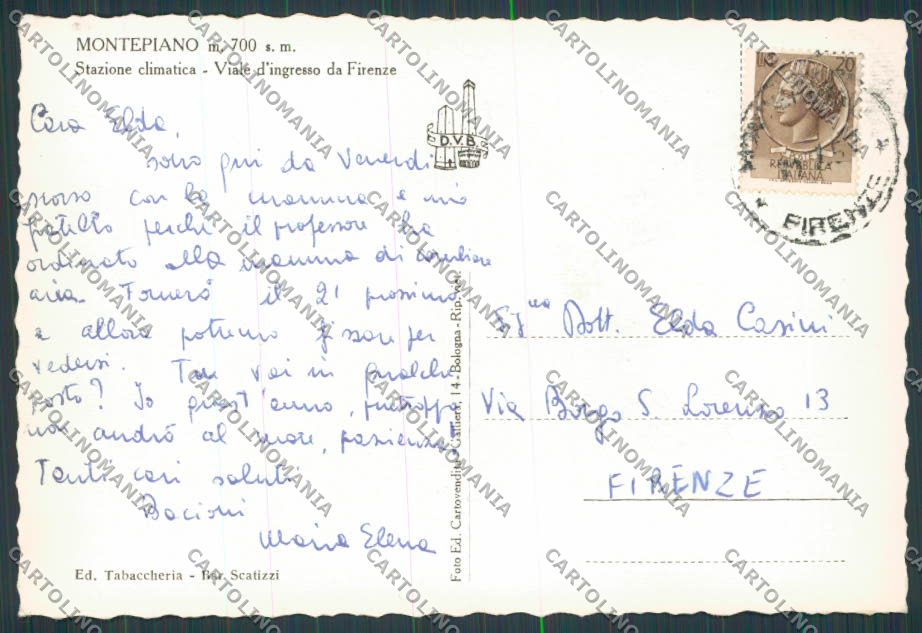 MONTEPIANO m. 700 s. m.
Stazione climatica - Viale d'ingresso da Firenze
Cara Elda,
sono qui da Venerdì
scorso con la mamma e mio
fratello perché il professore ha
ordinato alla mamma di cambiare
aria. Tornerò il 21 prossimo
e allora potremo fissare per
vederci. Tu vai in qualche
posto? Io quest'anno, purtroppo
non andrò al mare, pazienza!
Tanti cari saluti
Bacioni
Maria Elena
Ed. Tabaccheria - Bar Scatizzi
D.V.B.
Foto Ed. Cartovendita - Galliera, 14 - Bologna - Rip. viet.
20
REPVBBLICA
ITALIANA
FIRENZE
Dott. Elda Casini
Via Borgo S. Lorenzo 13
FIRENZE
CARTOLINOMANIA